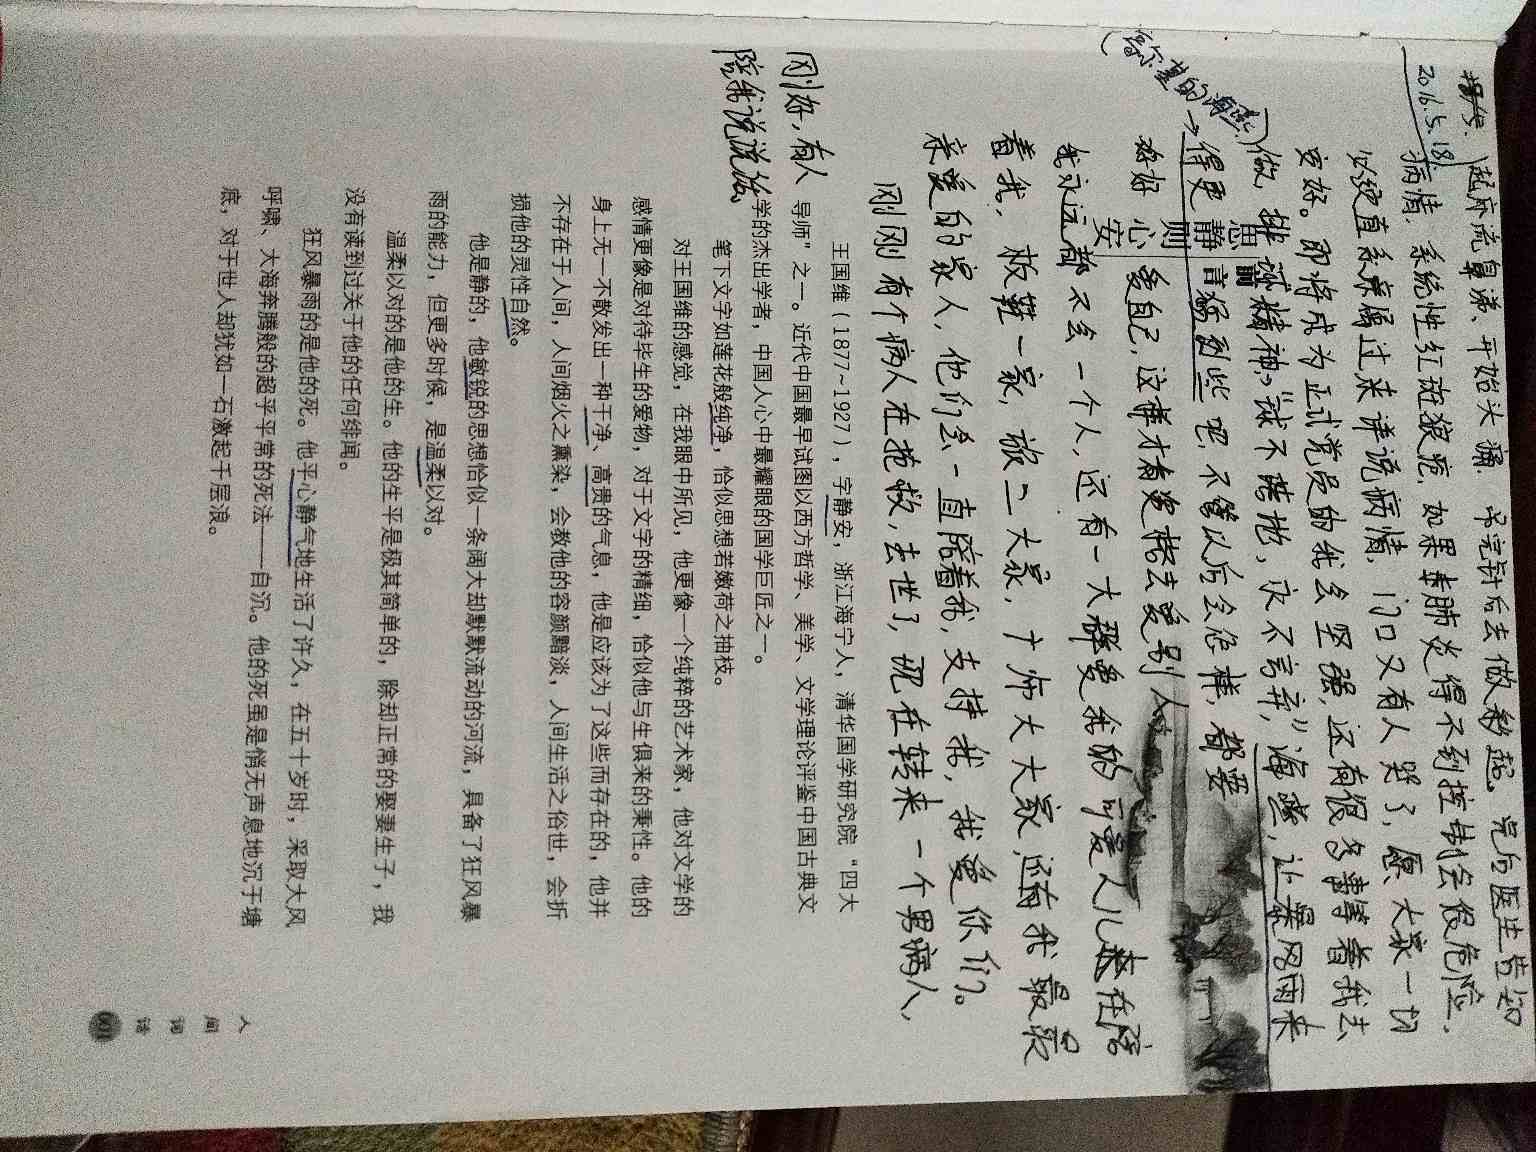 2016.5.18
起床流鼻涕、开始头痛 吊完针后去做彩超 完后医生告知
病情, 系统性红斑狼疮, 如果事肺炎得不到控制会很危险,
以便直系亲属过来详说病情, 门口又有人哭了, 愿大家一切
安好。即将成为正式党员的我会坚强, 还有很多事等着我去
做, 排球精神"试不言抛, 永不言弃," 海燕, 让暴风雨来
(高尔基的海燕)
得更猛烈些吧 不管以后会怎样, 都要
好好爱自己, 这样才有资格去爱别人
前言
思则静
安心
我永远都不会一个人, 还有一大群爱我的可爱人儿在陪
着我, 板鞋一家, 旅二大家, 十师大大家, 还有我最最
亲爱的家人, 他们会一直陪着我, 支持我, 我爱你们。
刚刚有个病人在抢救, 去世了, 现在转来一个男病人,
刚好, 有人
陪我说说话。
王国维（1877~1927），字静安，浙江海宁人，清华国学研究院“四大
导师”之一。近代中国最早试图以西方哲学、美学、文学理论评鉴中国古典文
学的杰出学者，中国人心中最耀眼的国学巨匠之一。
笔下文字如莲花般纯净，恰似思想若嫩荷之抽枝。
对王国维的感觉，在我眼中所见，他更像一个纯粹的艺术家，他对文学的
感情更像是对待毕生的爱物，对于文字的精细，恰似他与生俱来的秉性。他的
身上无一不散发出一种干净、高贵的气息，他是应该为了这些而存在的，他并
不存在于人间，人间烟火之熏染，会教他的容颜黯淡，人间生活之俗世，会折
损他的灵性自然。
他是静的，他敏锐的思想恰似一条阔大却默默流动的河流，具备了狂风暴
雨的能力，但更多时候，是温柔以对。
温柔以对的是他的生。他的生平是极其简单的，除却正常的娶妻生子，我
没有读到过关于他的任何绯闻。
狂风暴雨的是他的死。他平心静气地生活了许久，在五十岁时，采取大风
呼啸、大海奔腾般的超乎平常的死法——自沉。他的死虽是悄无声息地沉于塘
底，对于世人却犹如一石激起千层浪。
人间词话
001